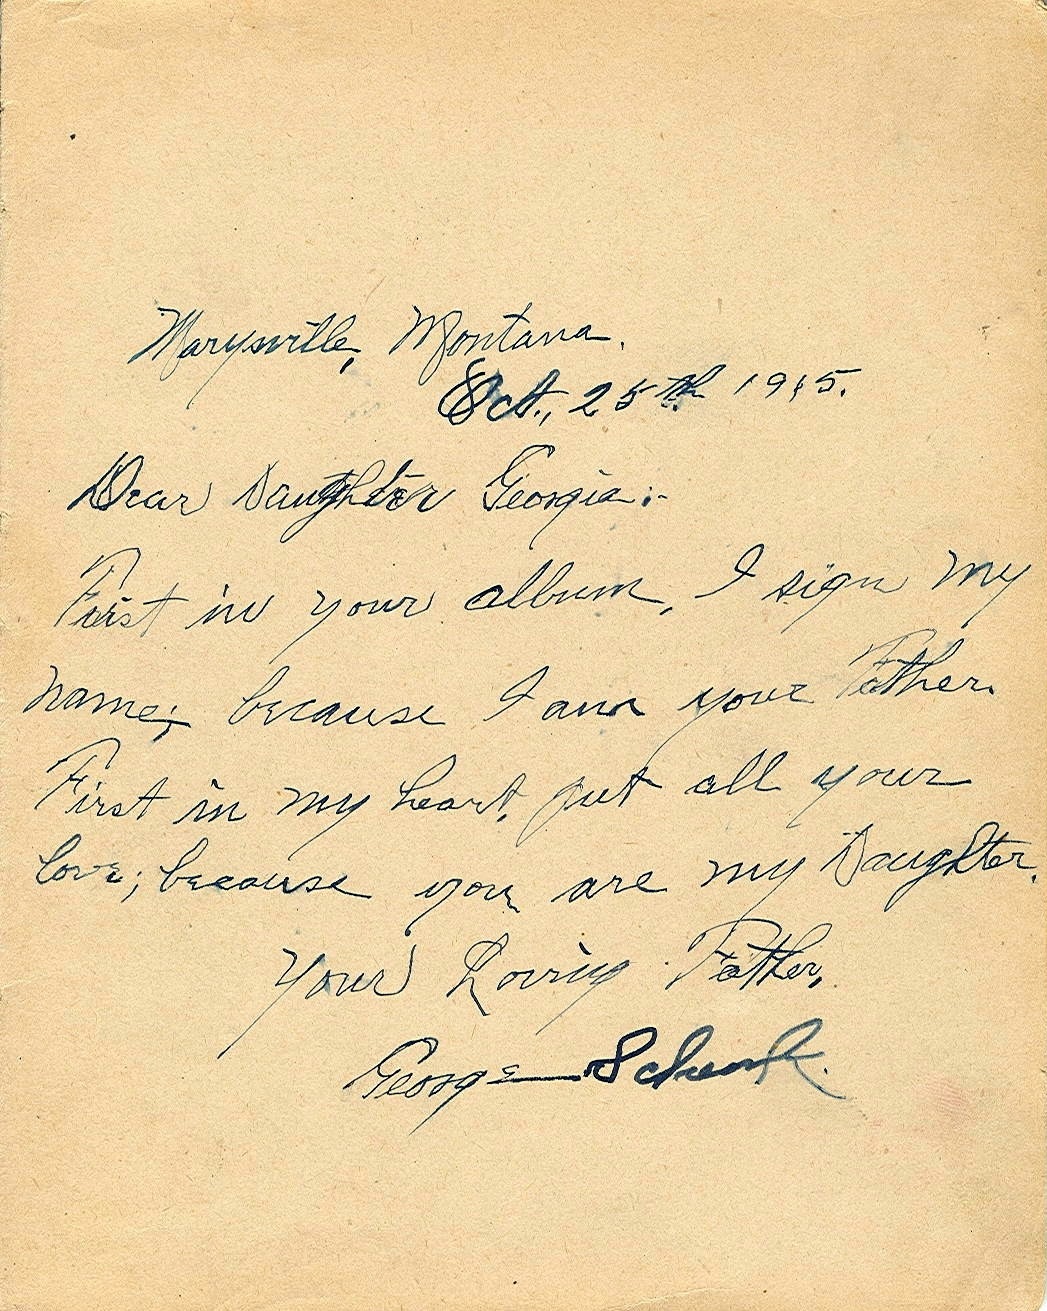 Marysville, Montana.
Oct., 25th 1915.
Dear Daughter Georgia:-
First in your album, I sign my
name; because I am your Father.
First in my heart, put all your
love; because you are my Daughter.
Your Loving Father,
George Schenk.